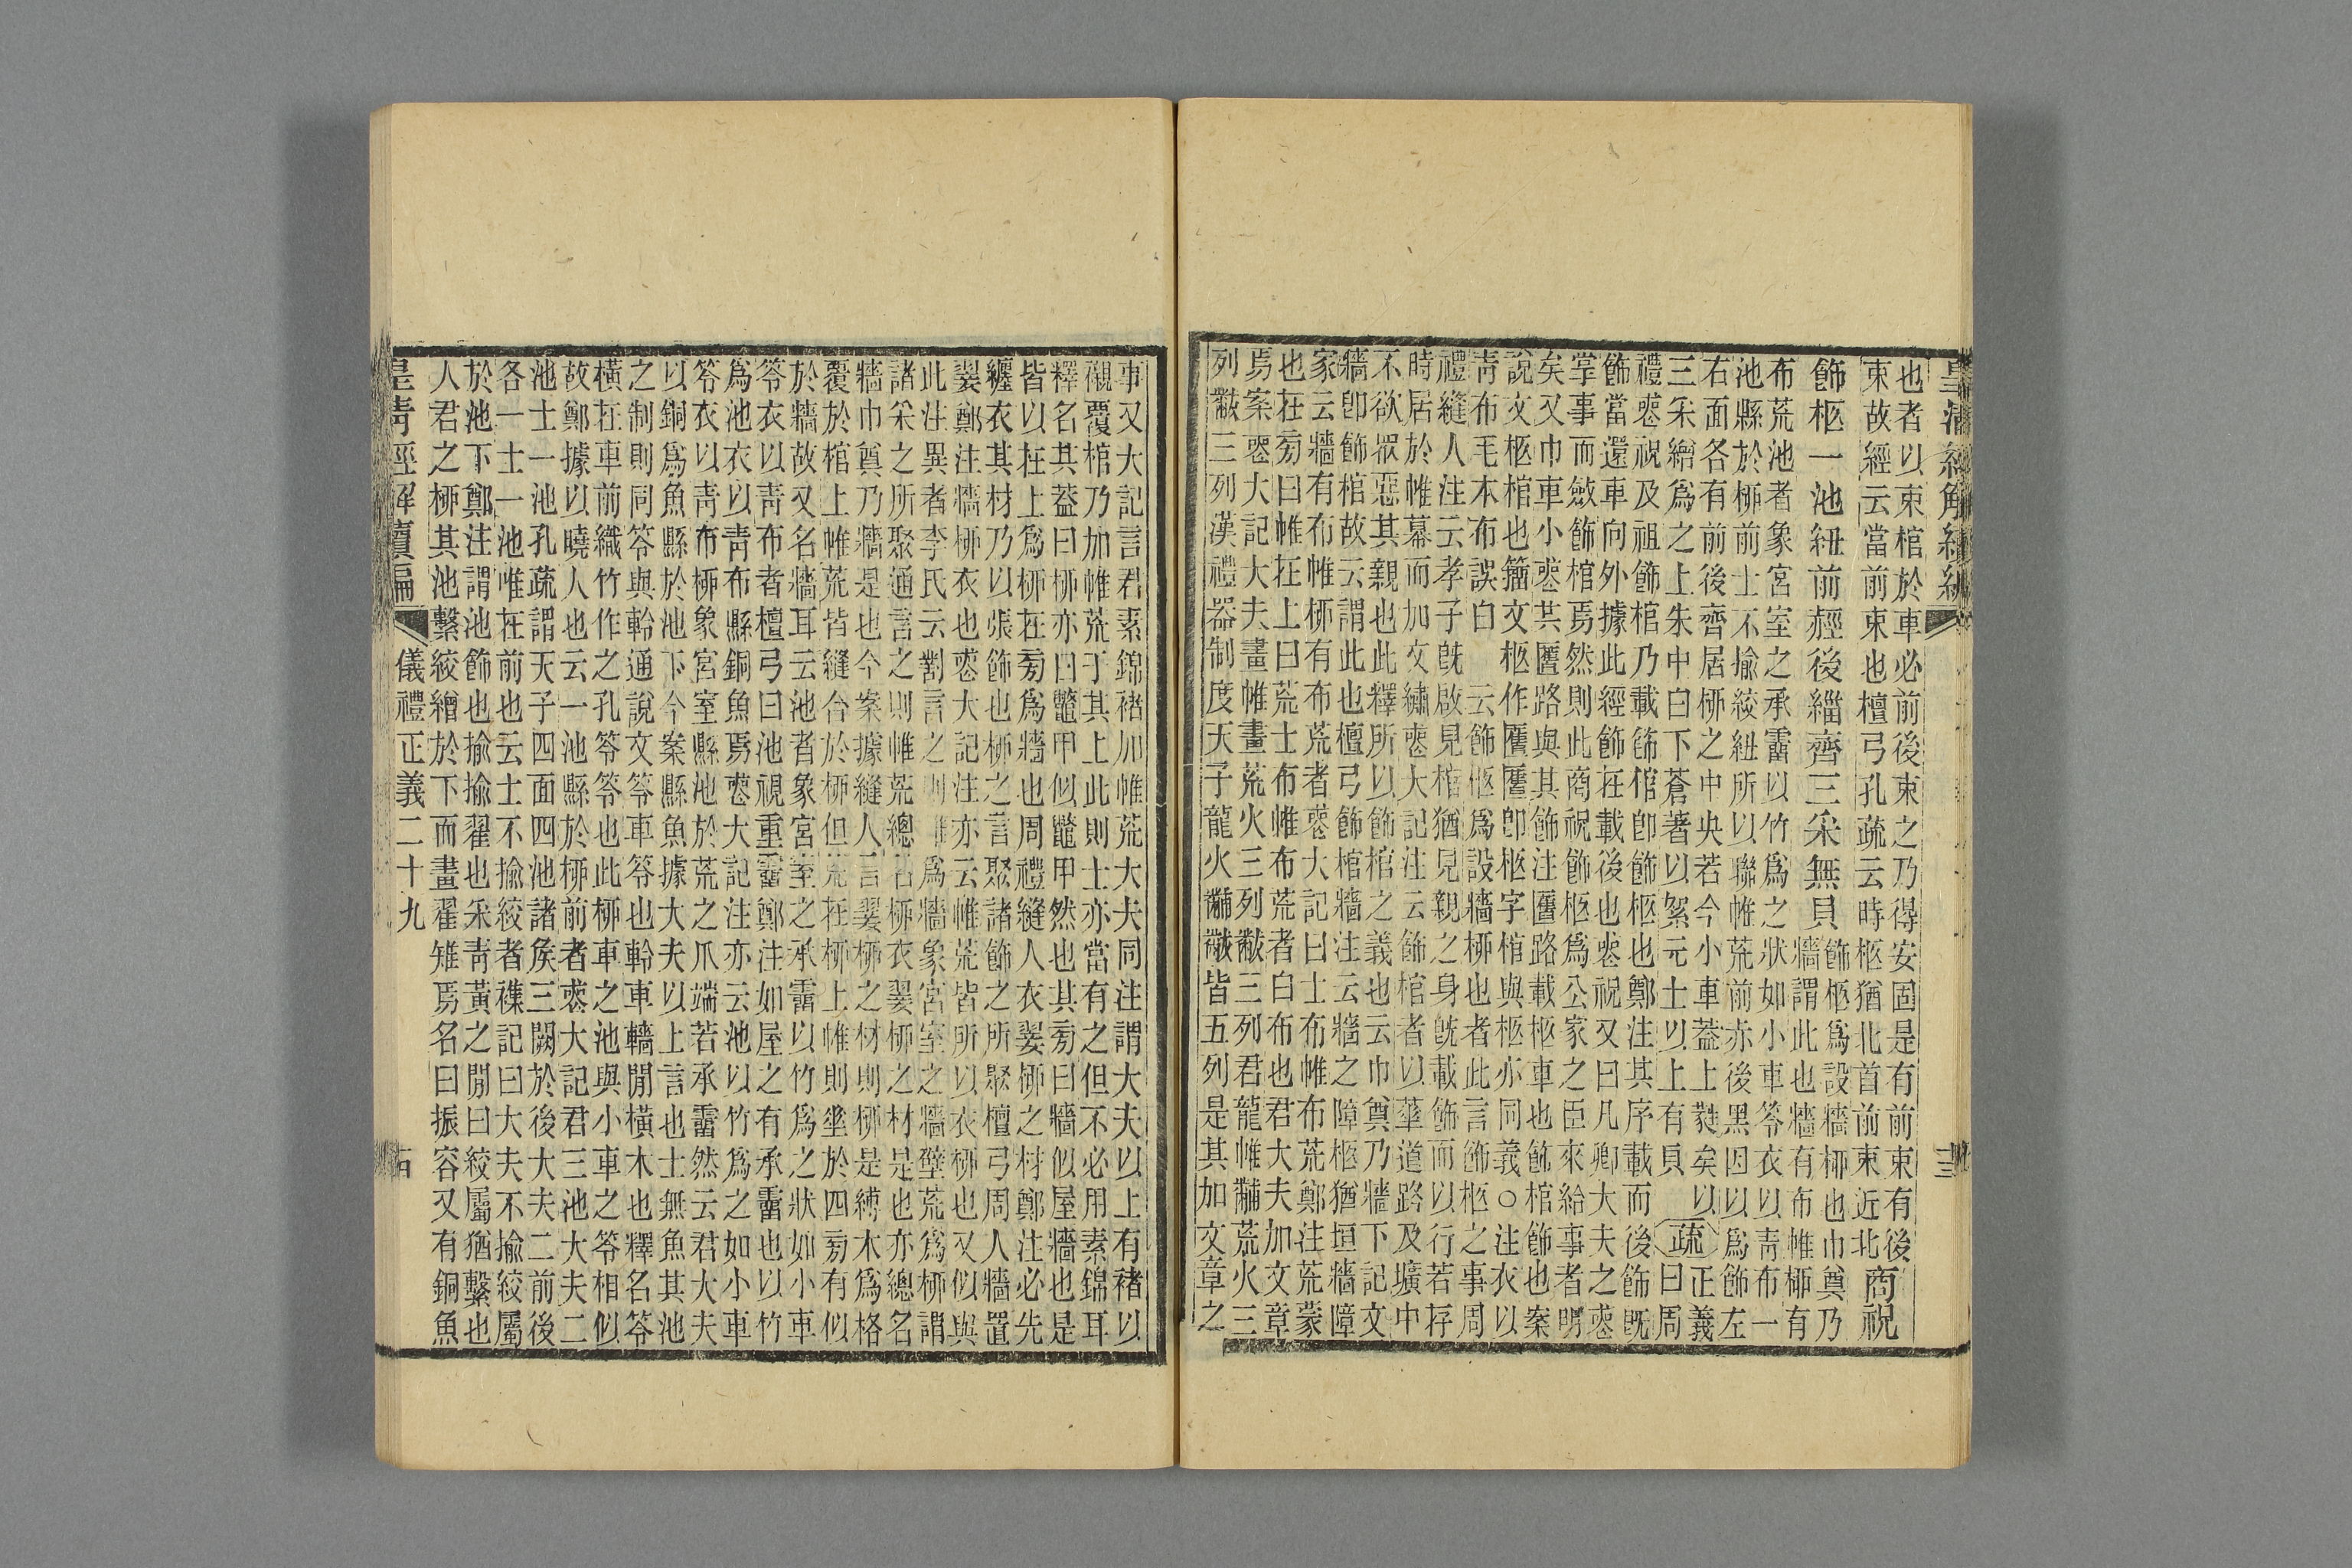 皇清經解續編
十三
也者以束棺於車必前後束之乃得安固是有前束有後
束故經云當前束也檀弓孔疏云時柩猶北首前束近北商祝
飾柩一池紐前䞓後緇齊三采無貝飾柩爲設牆柳也巾奠乃
牆謂此也牆有布帷柳有
布荒池者象宮室之承霤以竹爲之狀如小車笭衣以靑布一
池縣於柳前士不揄絞紐所以聯帷荒前赤後黑因以爲飾左
右面各有前後齊居柳之中央若今小車葢上蕤矣以正義
三采繒爲之上朱中白下蒼著以絮元士以上有貝疏曰周
禮喪祝及祖飾棺乃載飾棺卽飾柩也鄭注其序載而後飾旣
飾當還車向外據此經飾在載後也喪祝又曰凡卿大夫之喪
掌事而斂飾棺焉然則此商祝飾柩爲公家之臣來給事者明
矣又巾車小喪共匶路與其飾注匶路載柩車也飾棺飾也案
說文柩棺也籀文柩作匶匶卽柩字棺與柩亦同義○注衣以
靑布毛本布誤白 云飾柩爲設牆柳也者此言飾柩之事周
禮縫人注云孝子旣啟見棺猶見親之身旣載飾而以行若存
時居於帷幕而加文繡喪大記注云飾棺者以華道路及壙中
不欲眾惡其親也此釋所以飾棺之義也云巾奠乃牆下記文
牆卽飾棺故云謂此也檀弓飾棺牆注云牆之障柩猶垣牆障
家云牆有布帷柳有布荒者喪大記曰士布帷布荒鄭注荒蒙
也在旁曰帷在上曰荒士布帷布荒者白布也君大夫加文章
焉案喪大記大夫畫帷畫荒火三列黻三列君龍帷黼荒火三
列黻三列漢禮器制度天子龍火黼黻皆五列是其加文章之
事又大記言君素錦褚加帷荒大夫同注謂大夫以上有褚以
襯覆棺乃加帷荒于其上此則士亦當有之但不必用素錦耳
釋名其葢曰柳亦曰鼈甲似鼈甲然也其旁曰牆似屋牆也是
皆以在上爲柳在旁爲牆也周禮縫人衣翣柳之材鄭注必先
纏衣其材乃以張飾也柳之言聚諸飾之所聚檀弓周人牆置
翣鄭注牆柳衣也喪大記注亦云帷荒皆所以衣柳也又似與
此注異者李氏云對言之則帷爲牆象宮室之牆壁荒爲柳謂
諸采之所聚通言之則帷荒總名柳衣翣柳之材是也亦總名
牆巾奠乃牆是也今案據縫人言翣柳之材則柳是縛木爲格
覆於棺上帷荒皆縫合於柳但荒在柳上帷則垂於四旁有似
於牆故又名牆耳云池者象宮室之承霤以竹爲之狀如小車
笭衣以靑布者檀弓曰池視重霤鄭注如屋之有承霤也以竹
爲池衣以靑布縣銅魚焉喪大記注亦云池以竹爲之如小車
笭衣以靑布柳象宮室縣池於荒之爪端若承霤然云君大夫
以銅爲魚縣於池下今案縣魚據大夫以上言也士無魚其池
之制則同笭與軨通說文笭車笭也軨車轖閒橫木也釋名笭
橫在車前織竹作之孔笭笭也此柳車之池與小車之笭相似
故鄭據以曉人也云一池縣於柳前者喪大記君三池大夫二
池士一池孔疏謂天子四面四池諸矦三闕於後大夫二前後
各一士一池唯在前也云士不揄絞者襍記曰大夫不揄絞屬
於池下鄭注謂池飾也揄揄翟也采靑黃之閒曰絞屬猶繫也
人君之柳其池繫絞繒於下而畫翟雉焉名曰振容又有銅魚
皇淸經解續編
儀禮正義二十九